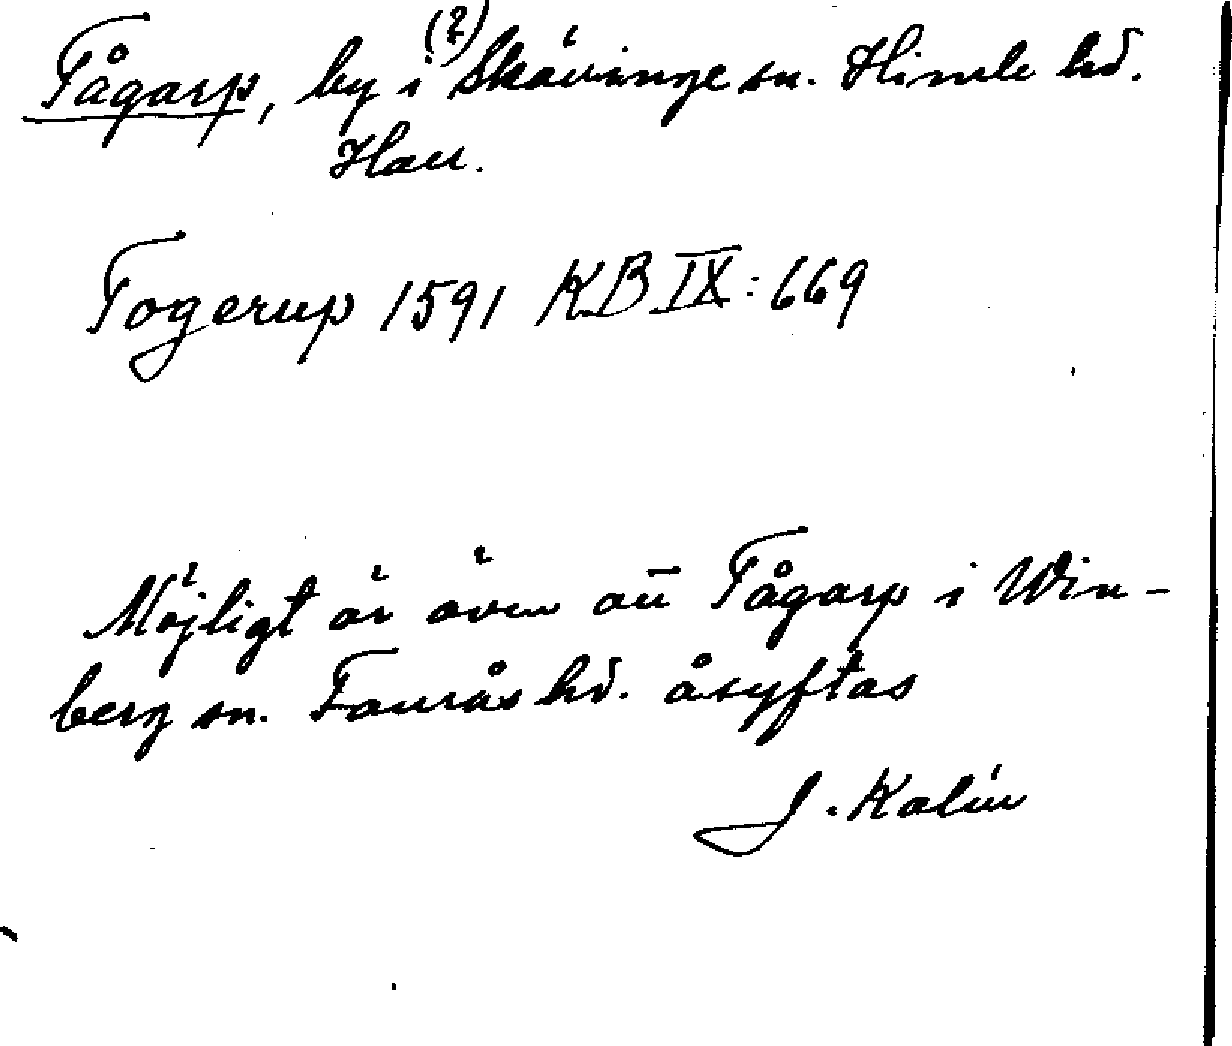 Tågarp, by i (?) Skävinge sn. Himle hd.
Hall.
Togerup 1591 KB IX: 669
Möjligt är även att Tågarp i Win-
berg sn. Faurås hd. åsyftas
J. Kalén